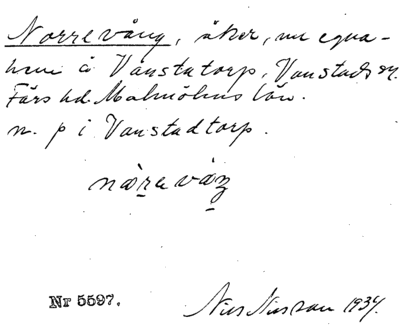 Norrevång, åker, nu egna-
hem å Vanstatorp, Vanstads sn.
Färs hd. Malmöhus län.
n. p i Vanstadtorp.
Nr 5597.
Nils Nilsson 1934.